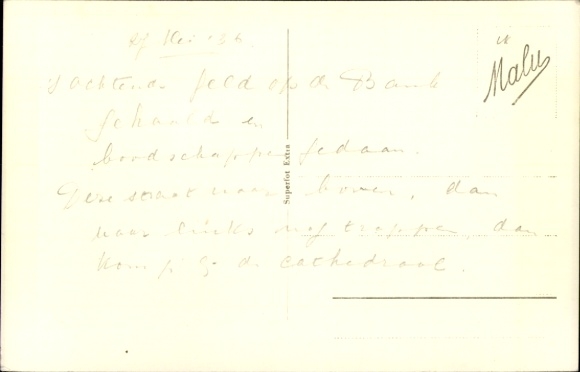 27 Mei '36
's ochtends geld op de Bank
gehaald en
boodschappen gedaan.
Deze straat naar boven, dan
naar links nog trappen, dan
kom je bij de cathedraal.
Superfot Extra
Malu